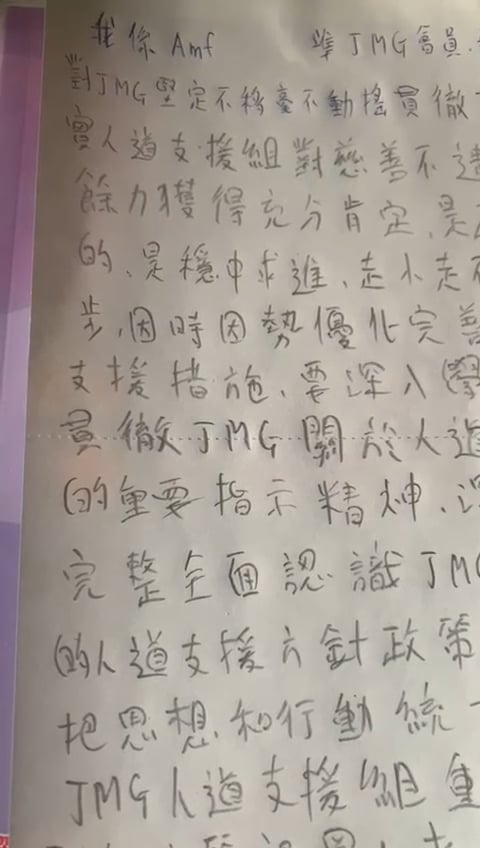 我係 Amf 準JMG會員.
對JMG堅定不移毫不動搖貫徹
實人道支援組對慈善不遺
餘力獲得充分肯定.是
的.是穩中求進.走小走不
步.因時因勢優化完善
支援措施.要深入學
貫徹JMG關於人道
的重要指示精神.深
完整全面認識JMG
的人道支援方針政策
把思想和行動統一
JMG人道支援組重